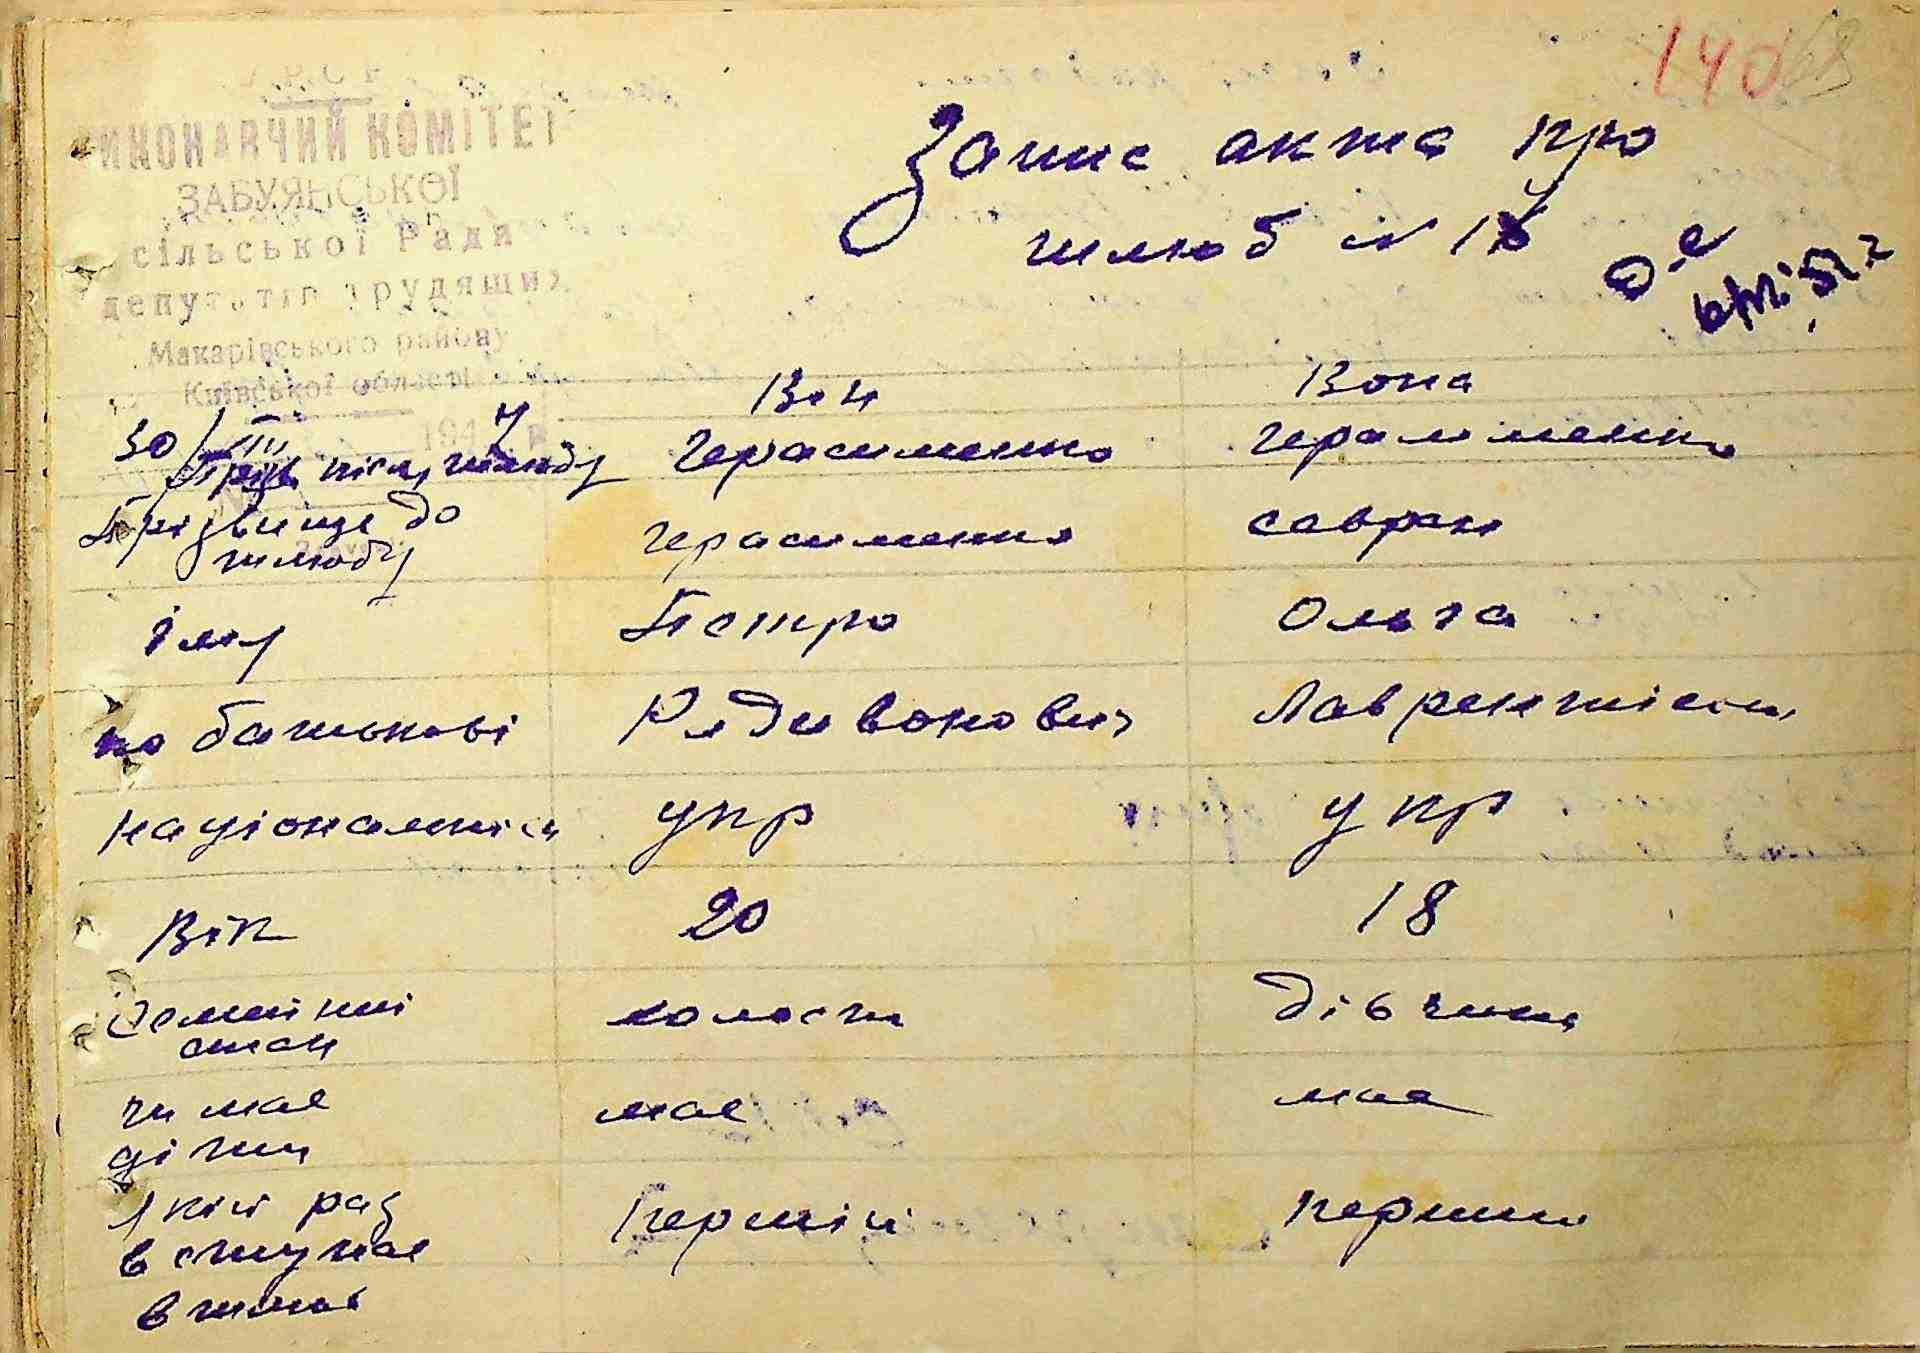 140
68
УРСР
ВИКОНАВЧИЙ КОМІТЕТ
ЗАБУЯНСЬКОЇ
сільської Ради
депутатів трудящих
Макарівського району
Київської області
30/III 1947 р
Запис акта про
шлюб № 17
Він Вона
Прізв. після шлюбу Герасименко Герасименко
Прізвище до Герасименко Савран
шлюбу
Імя Петро Ольга
по батькові Радивонович Лаврентієвн
національність укр укр
Вік 20 18
Семейний холости дівчина
стан
чи має має має
діти
який раз Перший перший
вступає
в шлюб